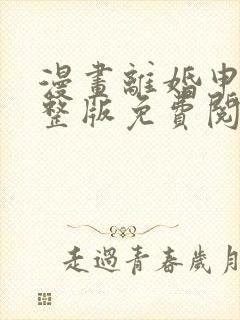 漫畫離婚申
整版免費閱
走過青春歲月